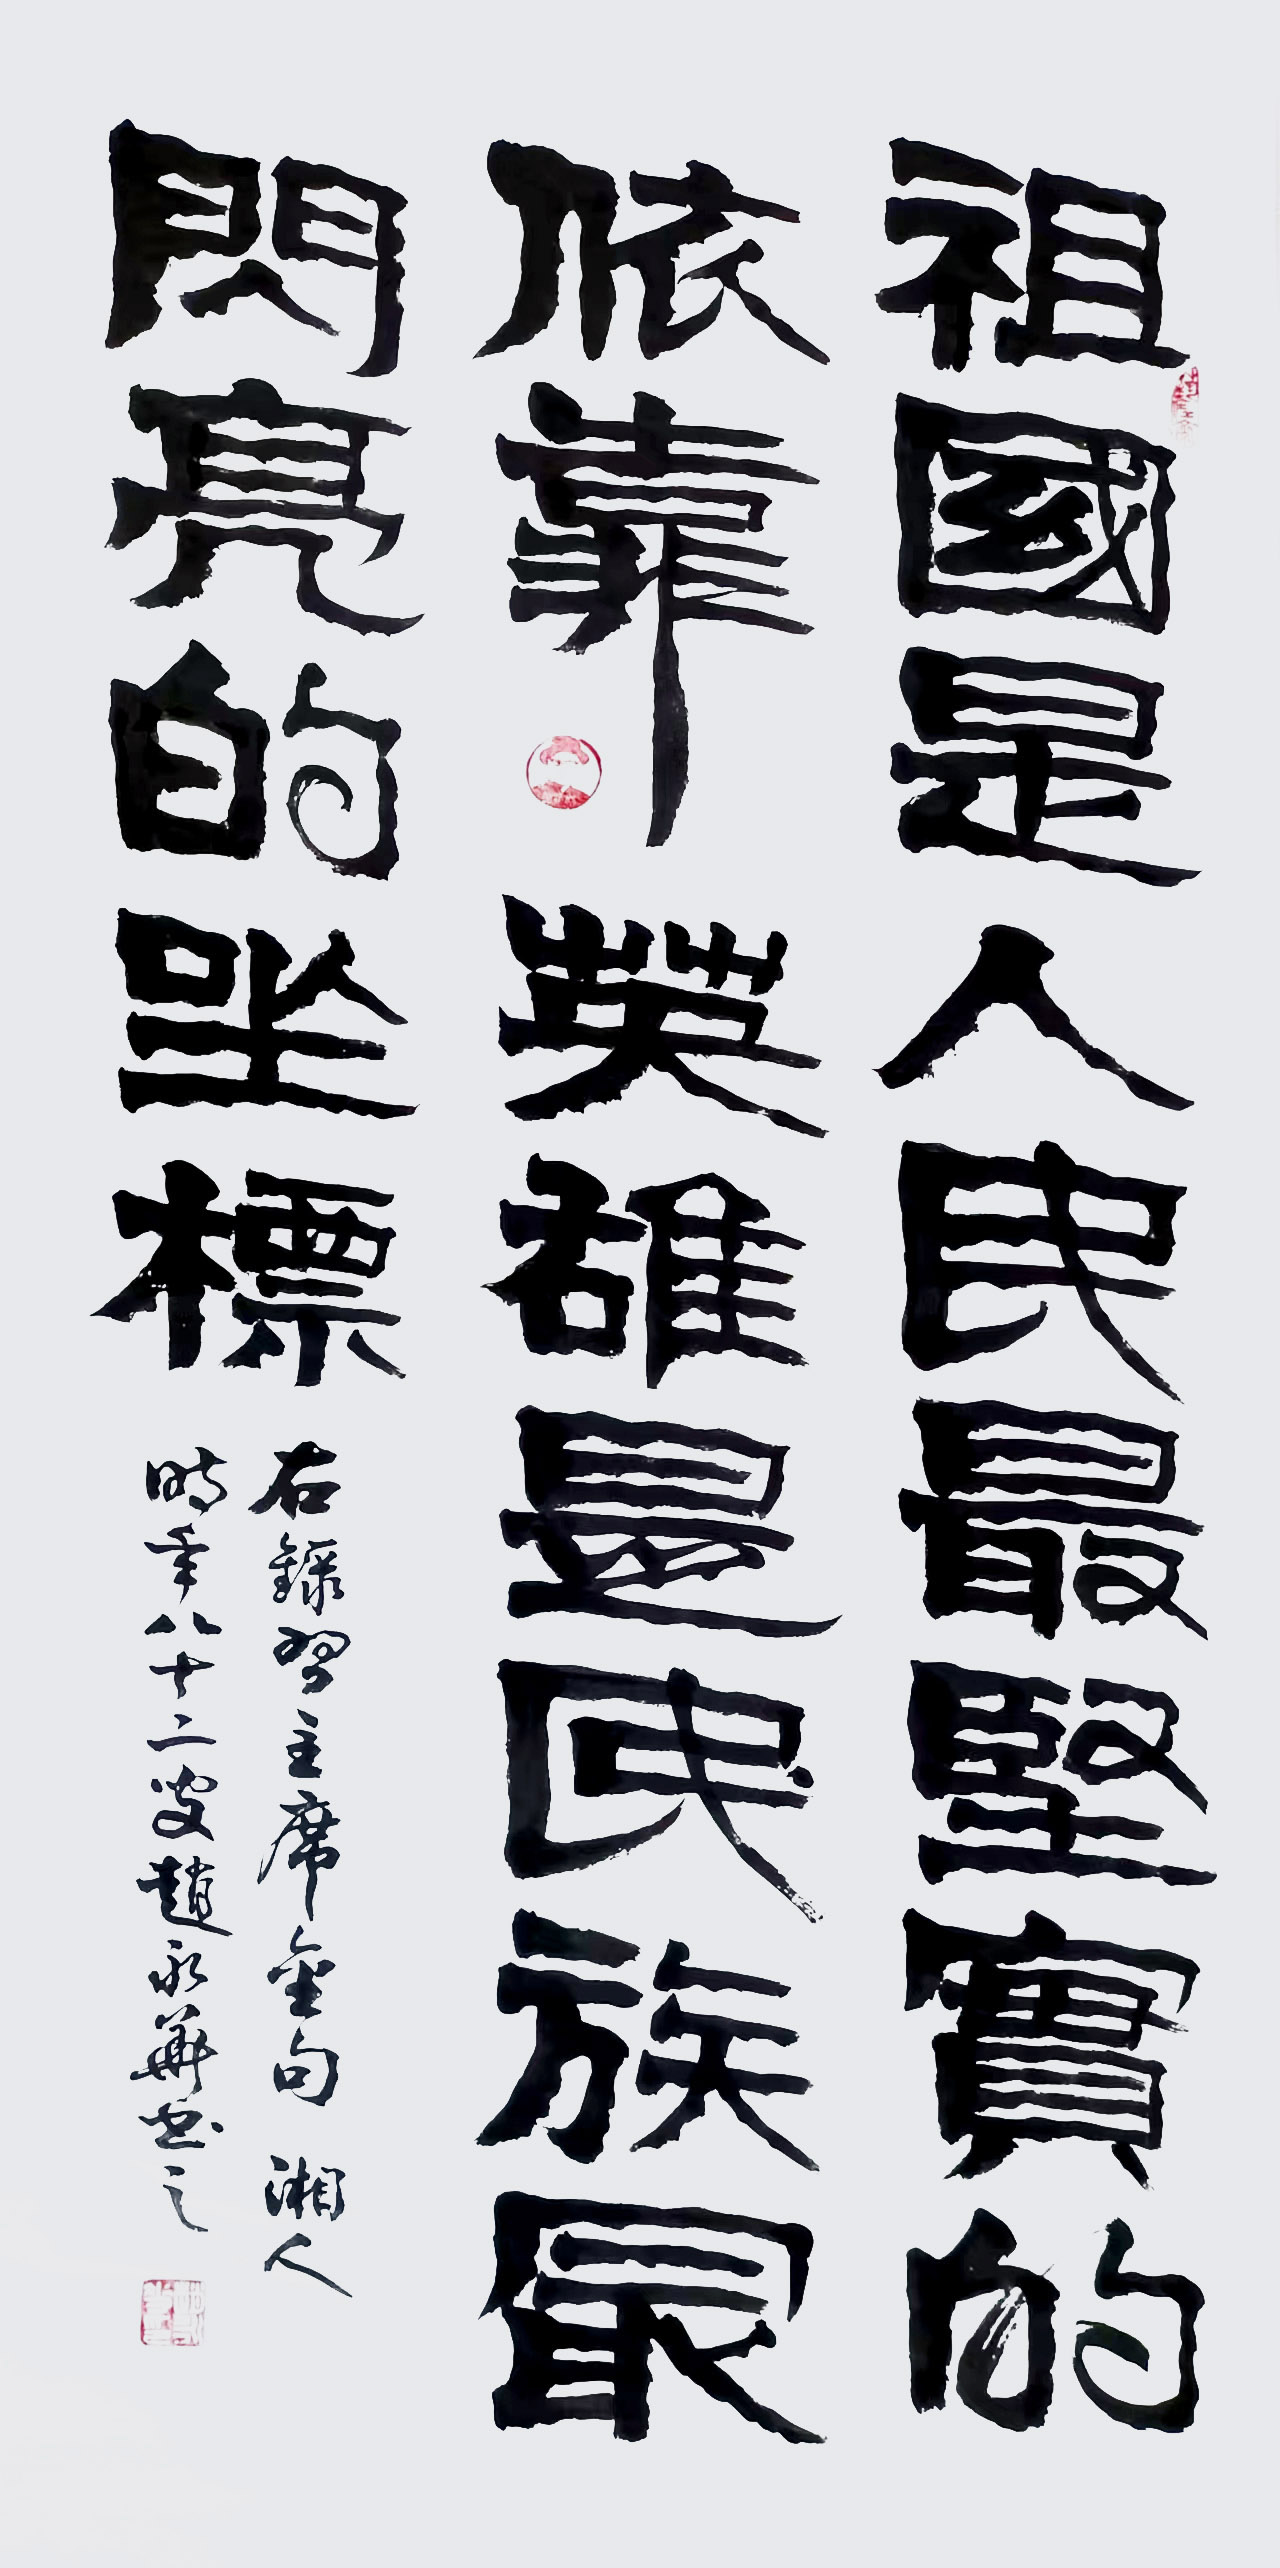 祖國是人民最堅實的
依靠英雄是民族最
閃亮的坐標
右録習主席金句 湘人
時年八十二叟趙永華书之